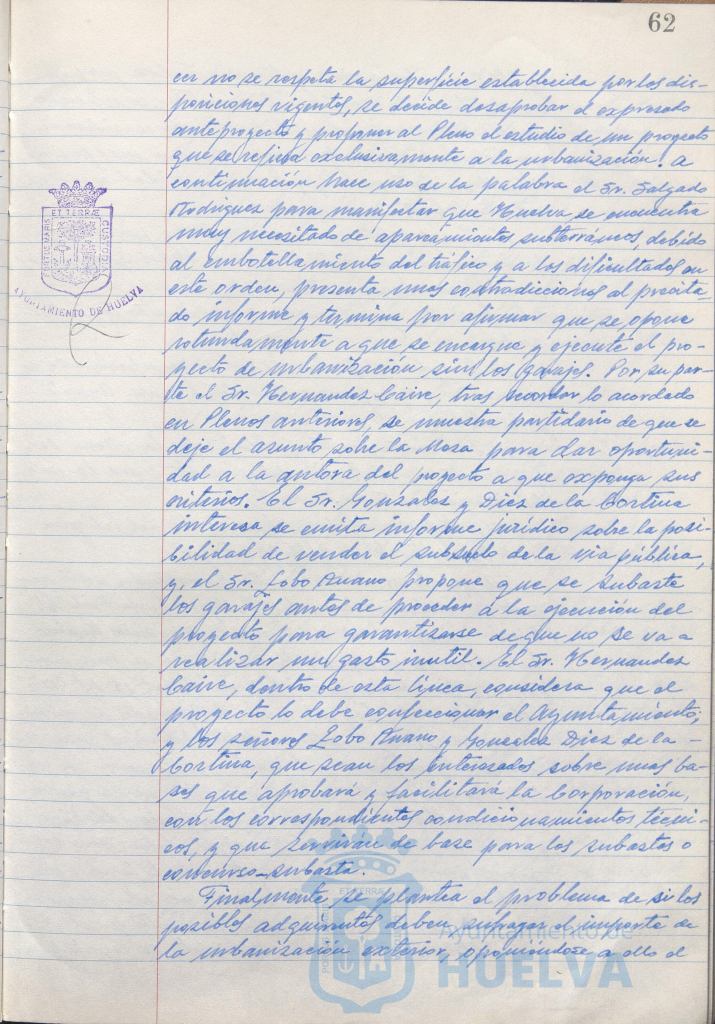 62
cer no se respeta la superficie establecida por los dis-
posiciones vigentes, se decide desaprobar el expresado
anteproyecto y proponer al Pleno el estudio de un proyecto
que se refiera exclusivamente a la urbanización. A
continuación hace uso de la palabra el Sr. Salgado
Rodriguez para manifestar que Huelva se encuentra
muy necesitado de aparcamientos subterráneos, debido
al embotellamiento del tráfico y a las dificultades en
este orden, presenta unas contradicciones al precita-
do informe y termina por afirmar que se opone
rotundamente a que se encargue y ejecute el pro-
yecto de urbanización sin los garajes. Por su par-
te el Sr. Hernandez Caire, tras recordar lo acordado
en Plenos anteriores, se muestra partidario de que se
deje el asunto sobre la Mesa para dar oportuni-
dad a la autora del proyecto a que exponga sus
criterios. El Sr. Gonzalez y Diez de la Cortina
interesa se emita informe jurídico sobre la posi-
bilidad de vender el subsuelo de la via pública,
y, el Sr. Lobo propone que se subaste
los garajes antes de proceder a la ejecución del
proyecto para garantizarse de que no se va a
realizar un gasto inutil. El Sr. Hernandez
Caire, dentro de esta línea, considera que el
proyecto lo debe confeccionar el Ayuntamiento,
y los señores Lobo y Gonzalez Diez de la -
Cortina, que sean los interesados sobre unas ba-
ses que aprobará y facilitará la Corporación,
con los correspondientes condicionamientos técni-
cos, y que servirán de base para las subastas o
concurso-subasta.
Finalmente se plantea el problema de si los
posibles adquirentes deben sufragar el importe de
la urbanización exterior, oponiéndose a ello el
ET TERRÆ
PORTUS MARIS
CUSTODIA
AYUNTAMIENTO DE HUELVA
Ayuntamiento de
HUELVA